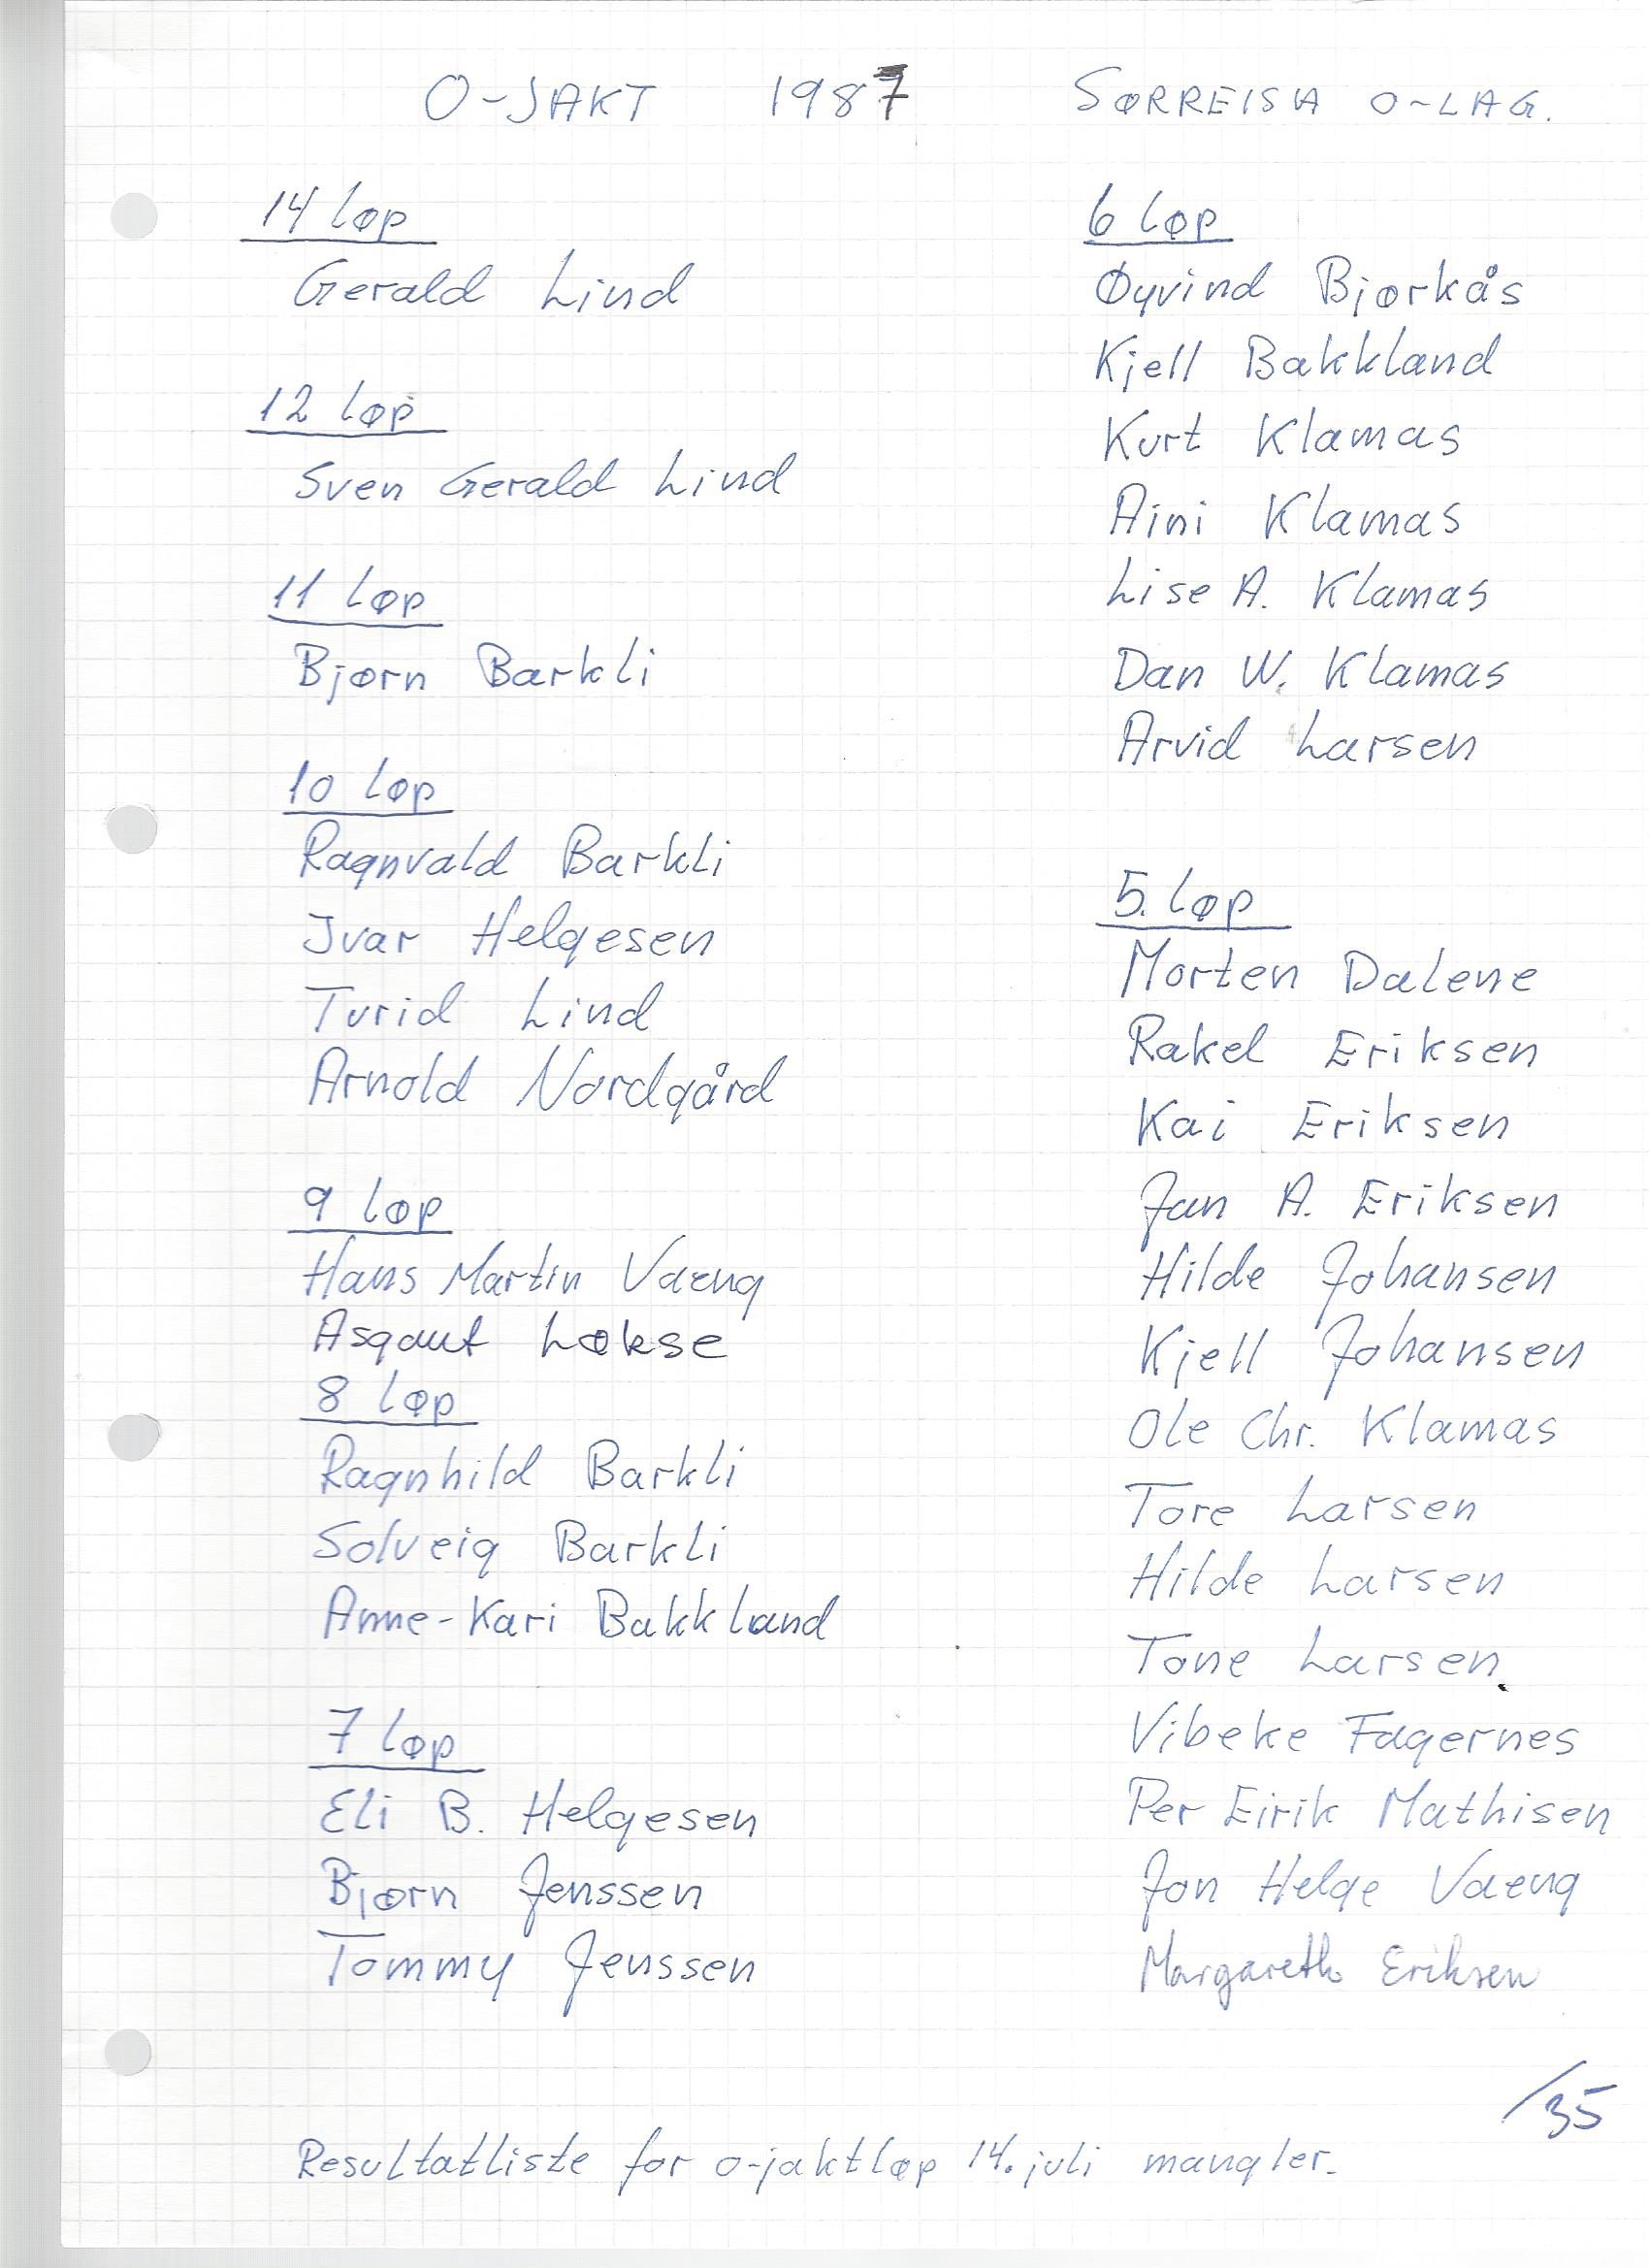 O-JAKT 1987 SØRREISA O-LAG.
14 løp
Gerald Lind
12 løp
Sven Gerald Lind
11 løp
Bjørn Barkli
10 løp
Ragnvald Barkli
Ivar Helgesen
Turid Lind
Arnold Nordgård
9 løp
Hans Martin Vaeng
Asgaut Løkse
8 løp
Ragnhild Barkli
Solveig Barkli
Anne-Kari Bakkland
7 løp
Eli B. Helgesen
Bjørn Jenssen
Tommy Jenssen
6 løp
Øyvind Bjørkås
Kjell Bakkland
Kurt Klamas
Aini Klamas
Lise A. Klamas
Dan W. Klamas
Arvid Larsen
5. løp
Morten Dalene
Rakel Eriksen
Kai Eriksen
Jan A. Eriksen
Hilde Johansen
Kjell Johansen
Ole Chr. Klamas
Tore Larsen
Hilde Larsen
Tone Larsen
Vibeke Fagernes
Per Eirik Mathisen
Jon Helge Vaeng
Margareth Eriksen
/35
Resultatliste for o-jaktløp 14. juli mangler.